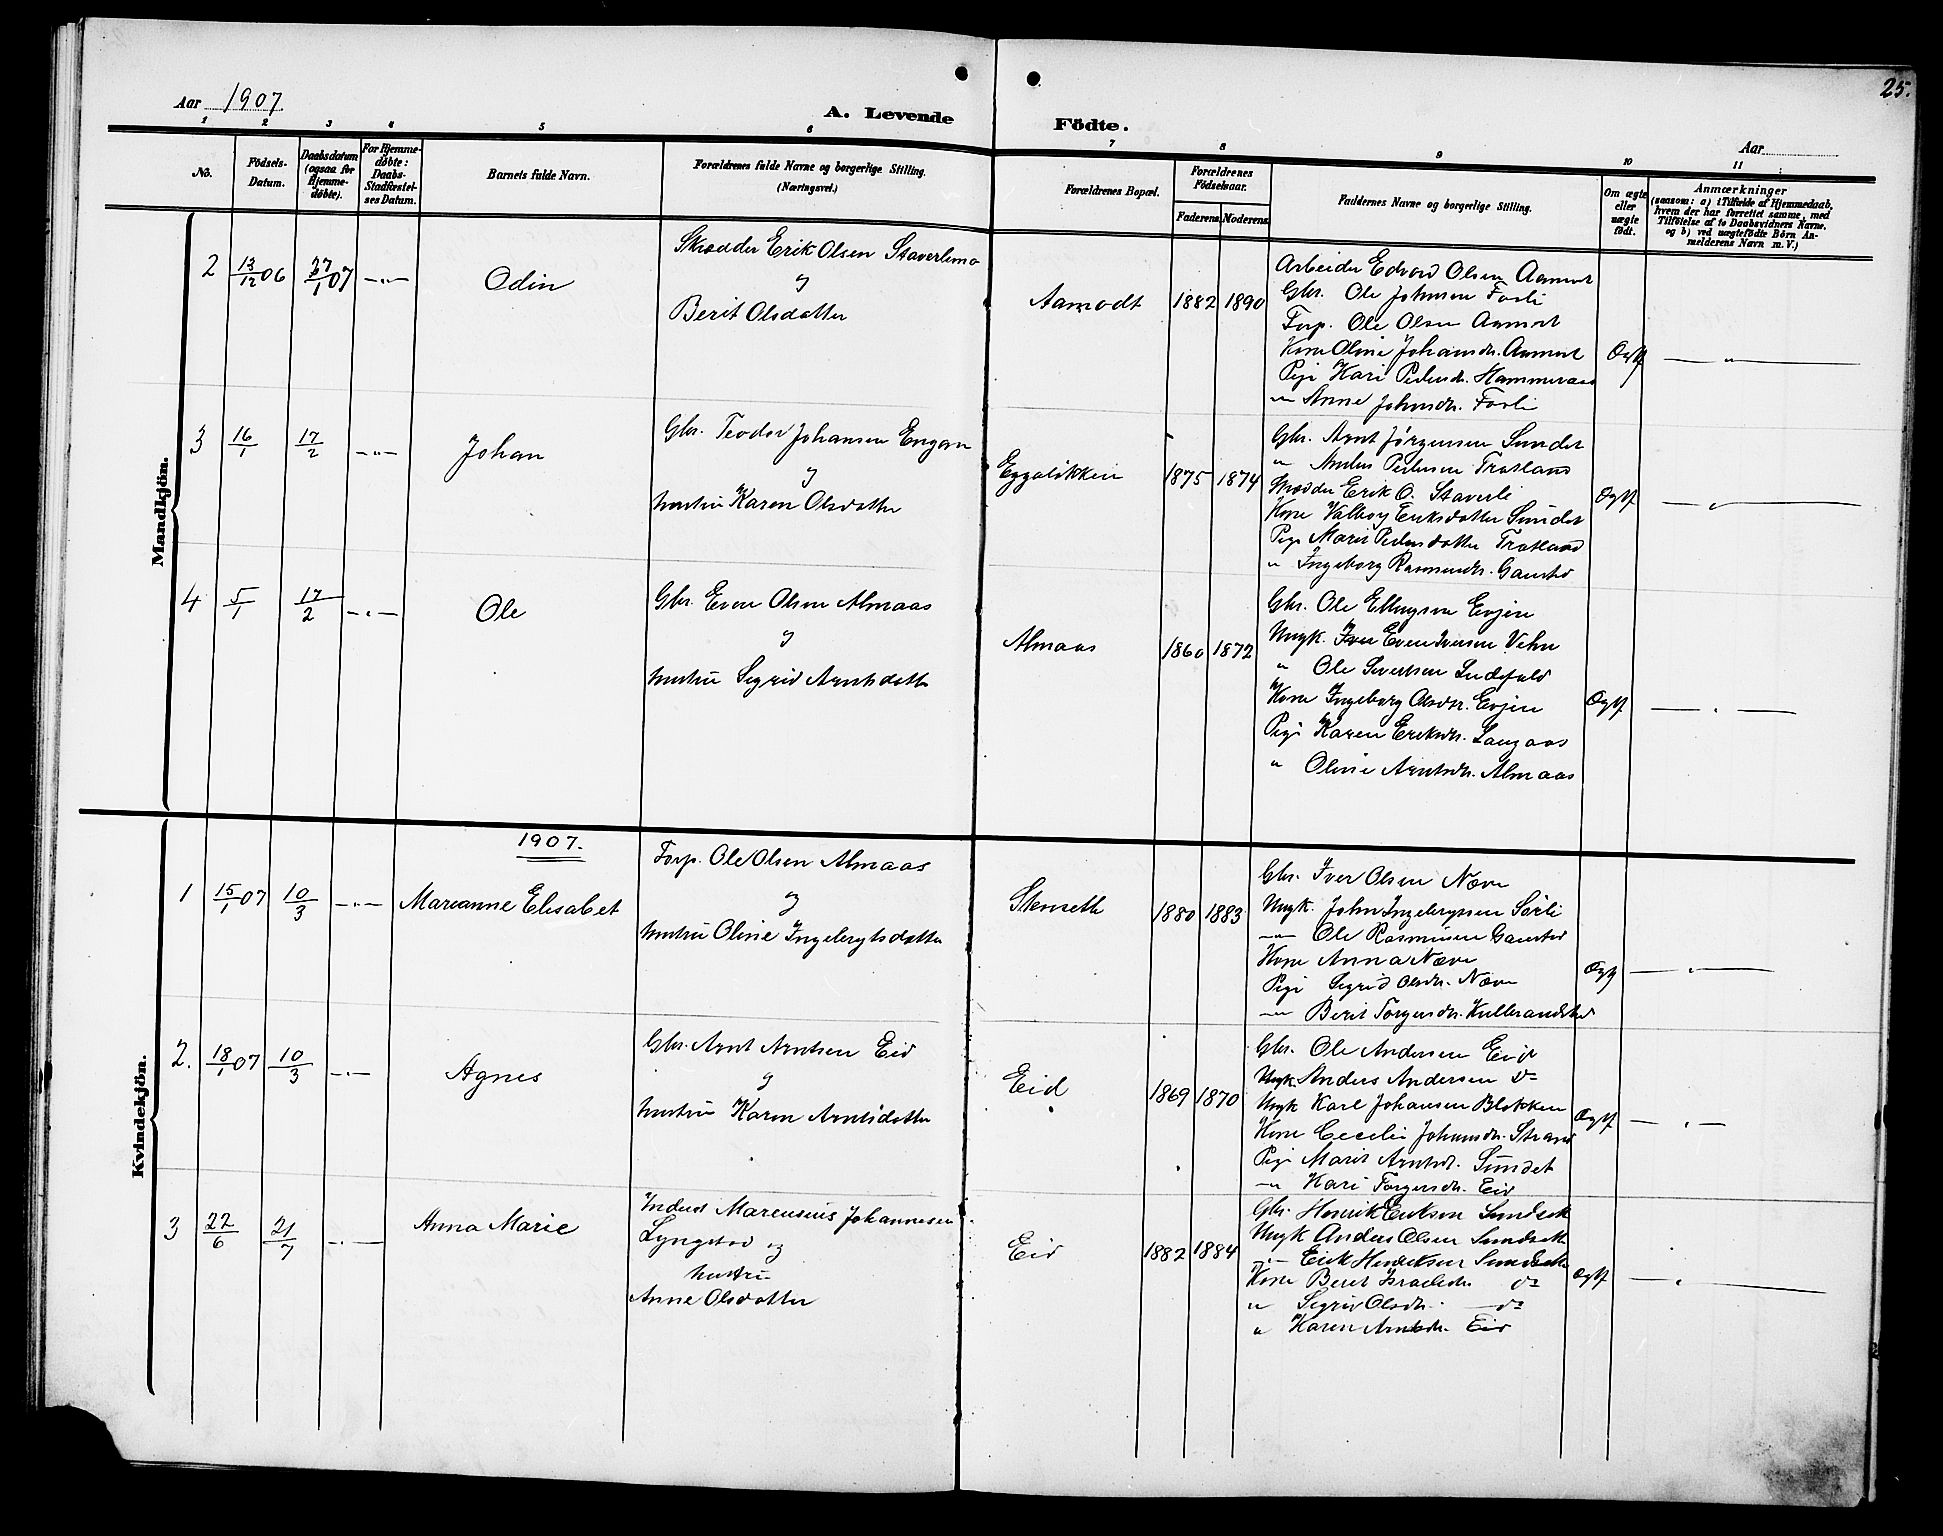 25.
Aar 1907
A. Levende Födte.
Aar
1 2 3 4 5 6 7 8 9 10 11
No.
Födsels-Datum.
Daabsdatum (ogsaa for Hjemme-døbte).
For Hjemme-døbte: Daabs-Stadfæstel-ses Datum.
Barnets fulde Navn.
Forældrenes fulde Navne og borgerlige Stilling. (Næringsvei.)
Forældrenes Bopæl.
Forældrenes Födselsaar.
Faderens. Moderens.
Faddernes Navne og borgerlige Stilling.
Om ægte eller uægte født.
Anmærkninger
(saasom: a) i Tilfælde af Hjemmedaab, hvem der har forrettet samme, med Tilføielse af to Daabsvidners Navne, og b) ved uægtefødte Börn An-melderens Navn m. V.)
Mandkjön.
2 13/12 06 27/1 07 —„— Odin
Skrædder Erik Olsen Staverlimo
og
Berit Olsdatter
Aamodt 1882 1890
Arbeider Edvard Olsen Aamot
Gbr. Ole Johnsen Fosli
Forp. Ole Olsen Aamot
Kone Oline Johansdr. Aamot
Pige Kari Pedersdr. Hammeraas
—„— Anne Johnsdr. Fosli
Ægtf — „ —
3 16/1 17/2 —„— Johan
Gbr. Teodor Johansen Engan
og
hustru Karen Olsdatter
Eggaløkken 1875 1874
Gbr. Arnt Jørgensen Sundet
„ Anders Pedersen Trøtland
Skrædder Erik O. Staverli
Kone Valborg Eriksdatter Sundet
Pige Marit Pedersdatter Trøtland
„ Ingeborg Rasmusdr. Ganstad
Ægtf — „ —
4 5/1 17/2 —„— Ole
Gbr. Even Olsen Almaas
og
hustru Sigrid Arntsdatter
Almaas 1860 1872
Gbr. Ole Ellingsen Evjen
Ungk. Even Iversen
„ Ole Sivertsen
Kone Ingeborg Olsdr. Evjen
Pige Karen Eriksdr. Langaas
„ Oline Arntsdr. Almaas
Ægtf — „ —
Kvindekjön.
1907.
1 15/1 07 10/3 —„— Marianne Elisabet
Forp. Ole Olsen Almaas
og
hustru Oline Ingebrigtsdatter
Stenseth 1880 1883
Gbr. Iver Olsen Næve
Ungk. John Ingebrigtsen Sørli
—„— Ole Rasmusen Ganstad
Kone Anna Næve
Pige Sigrid Olsdr. Næve
—„— Berit Torgersdr. Kulbrandstad
Ægtf — „ —
2. 18/1 07 10/3 —„— Agnes
Gbr. Arnt Arntsen Eid
og
hustru Karen Arntsdatter
Eid 1869 1870
Gbr. Ole Andersen Eid
Ungk Anders Andersen Do
Ungk Karl Johansen Bløkken
Kone Cecelie Johansdr. Strand
Pige Marit Arntsdr. Sundet
—„— Kari Torgersdr. Eid
Ægtf — „ —
3 22/6 21/7 —„— Anna Marie
Inderst Marensius Johannesen
Lyngstad og
hustru
Anne Olsdatter
Eid 1882 1884
Gbr. Henrik Eriksen Sundseth
Ungk Anders Olsen Sundseth
—„— Erik Henriksen Sundseth
Kone Beret Israelsdr. do
„ Sigrid Olsdr. — do
„ Karen Arntsdr. Eid
Ægtf — „ —